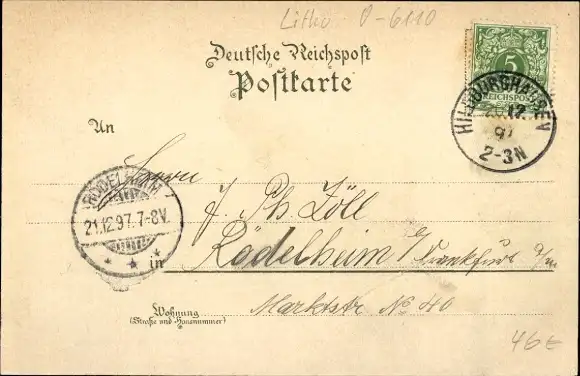 Litho O-6110
Deutsche Reichspost
Postkarte
5
REICHSPOST
HILDBURGHAUSEN
12.
97
2-3N
An
Herrn
RÖDELHEIM
21.12.97.7-8V.
J. Ph. Zöll
in Rödelheim b/ Frankfurt a/m
Wohnung
(Straße und Hausnummer)
Marktstr No 40
46€